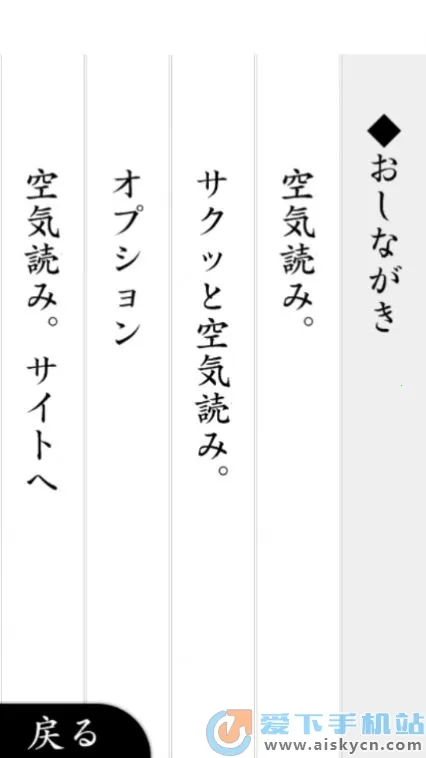 ◆おしながき
空気読み。
サクッと空気読み。
オプション
空気読み。サイトへ
戻る
爱下手机站
www.aiskycn.com